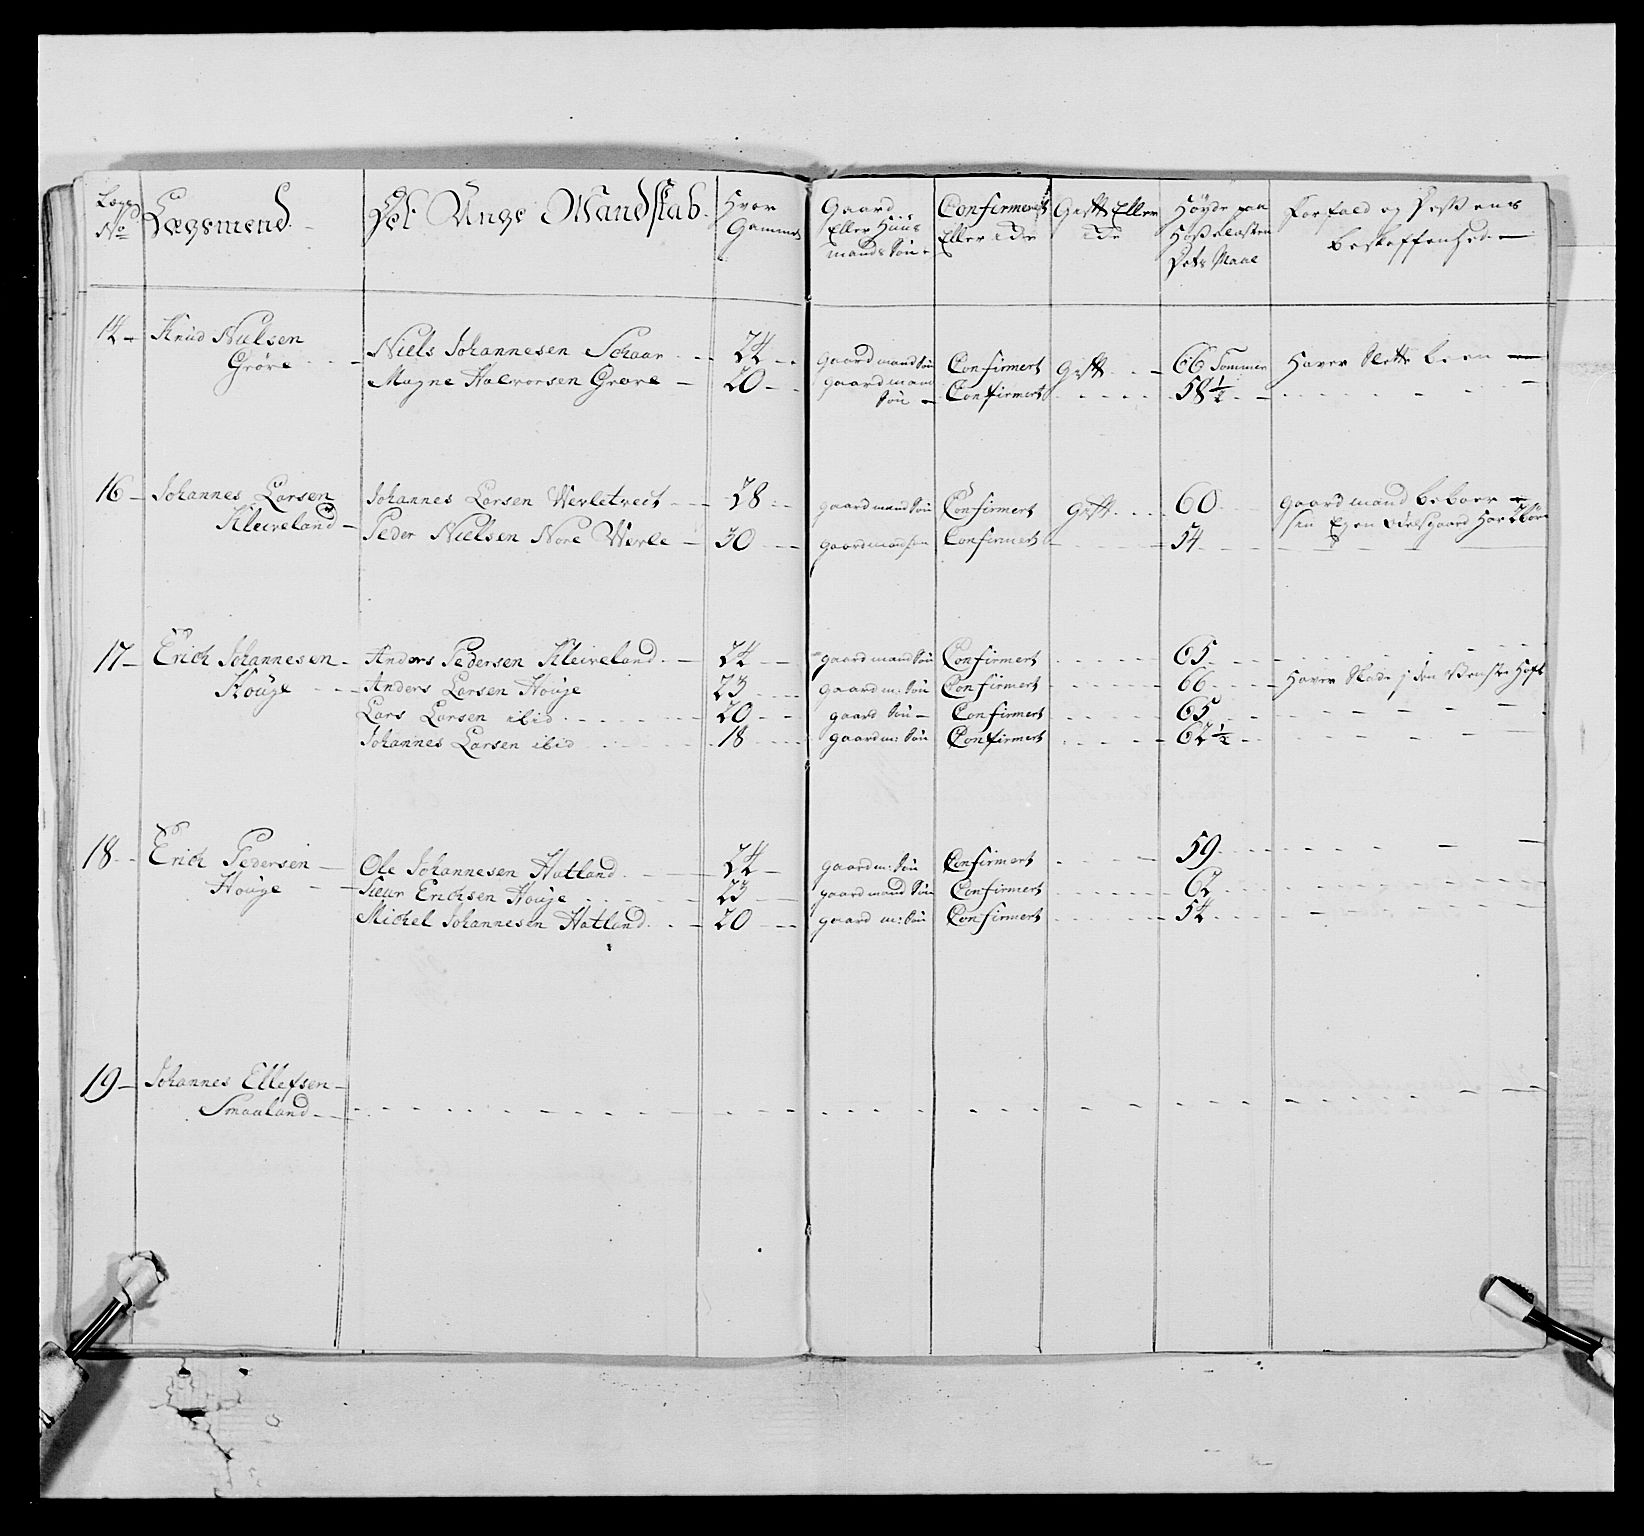 Lægs No Lægsmend. Det Unge Mandskab. Hvor Gammel Gaard Eller Huus mands Søn Confirmeret Eller Ide Gift Eller Ide Høyde paa Det's Maal Forfald og beskaffenhed
14 Knud Nielsen
Grøre Niels Johannesen Schaar 24 gaardmand Søn Confirmert Gift 66 Tommer Haver Slette been
Magne Halvorsen Grøre 20 gaardmand Søn Confirmert 58 1/2
16 Johannes Larsen Johannes Larsen Werletveit 28 gaardmand Søn Confirmert Gift 60 gaardmand beboer
Kleiveland Peder Nielsen Nore Werle 30 gaardmandsøn Confirmert 54
17 Erich Johannesen Anders Pedersen Kleiveland 24 gaardmand Søn Confirmert 65
Houge Anders Larsen Houge 23 gaardm: Søn Confirmert 66 Haver Skade i den Venstre Hofte
Lars Larsen ibid 20 gaard Søn Confirmert 65
Johannes Larsen ibid 18 gaardm: Søn Confirmert 62 1/2
18 Erich Pedersen Ole Johannesen Hatland 24 gaardm: Søn Confirmert 59
Houge Siur Erichsen Houge 23 gaardmand Søn Confirmert 62
Michel Johannesen Hatland 20 gaard m: Søn Confirmert 54
19 Johannes Ellefsen
Smaaland